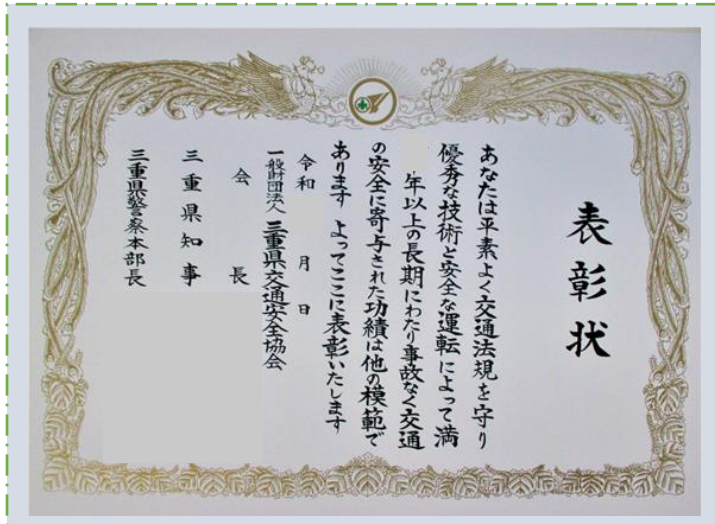 表彰状
あなたは平素よく交通法規を守り
優秀な技術と安全な運転によって満
年以上の長期にわたり事故なく交通
の安全に寄与された功績は他の模範で
あります よってここに表彰いたします
令和 月 日
一般財団法人 三重県交通安全協会
会長
三重県知事
三重県警察本部長